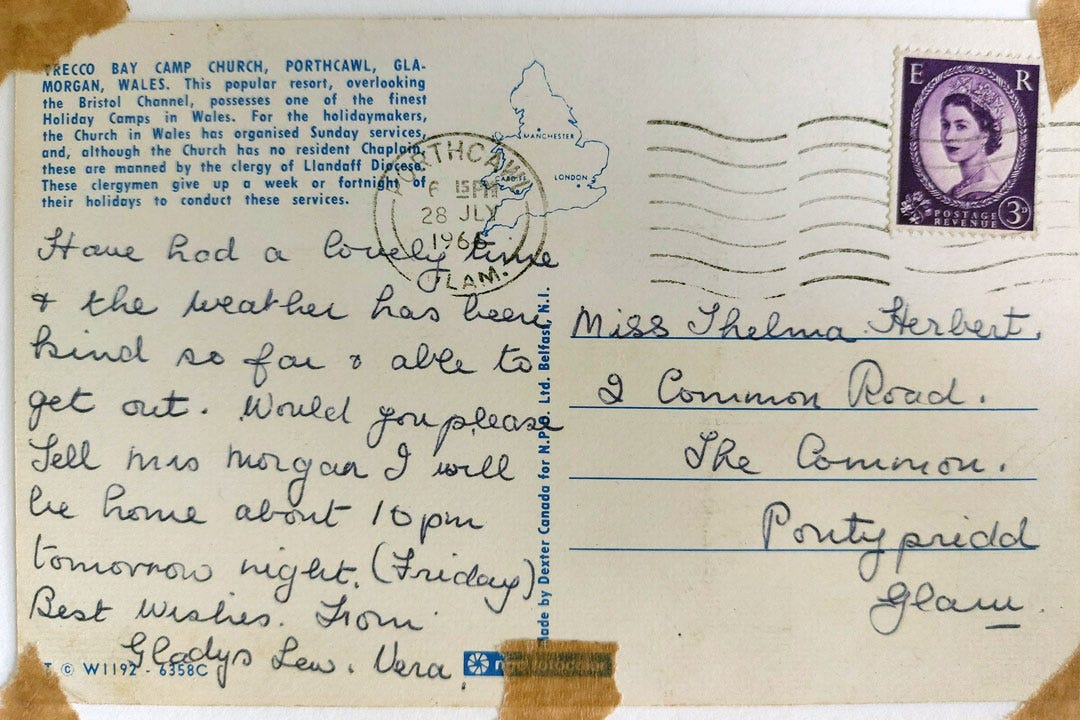 TRECCO BAY CAMP CHURCH, PORTHCAWL, GLA-
MORGAN, WALES. This popular resort, overlooking
the Bristol Channel, possesses one of the finest
Holiday Camps in Wales. For the holidaymakers,
the Church in Wales has organised Sunday services,
and, although the Church has no resident Chaplain,
these are manned by the clergy of Llandaff Diocese.
These clergymen give up a week or fortnight of
their holidays to conduct these services.
MANCHESTER
CARDIFF
LONDON
PORTHCAWL
6 15PM
28 JLY
1966
GLAM.
E R
POSTAGE
REVENUE
3D
Have had a lovely time
& the weather has been
kind so far & able to
get out. Would you please
Tell Mrs Morgan I will
be home about 10pm
tomorrow night. (Friday)
Best Wishes. From
Gladys Lew. Vera.
Made by Dexter Canada for N.P.O. Ltd. Belfast, N.I.
Miss Thelma Herbert.
2 Common Road.
The Common.
Pontypridd
Glam.
T © W1192 - 6358C